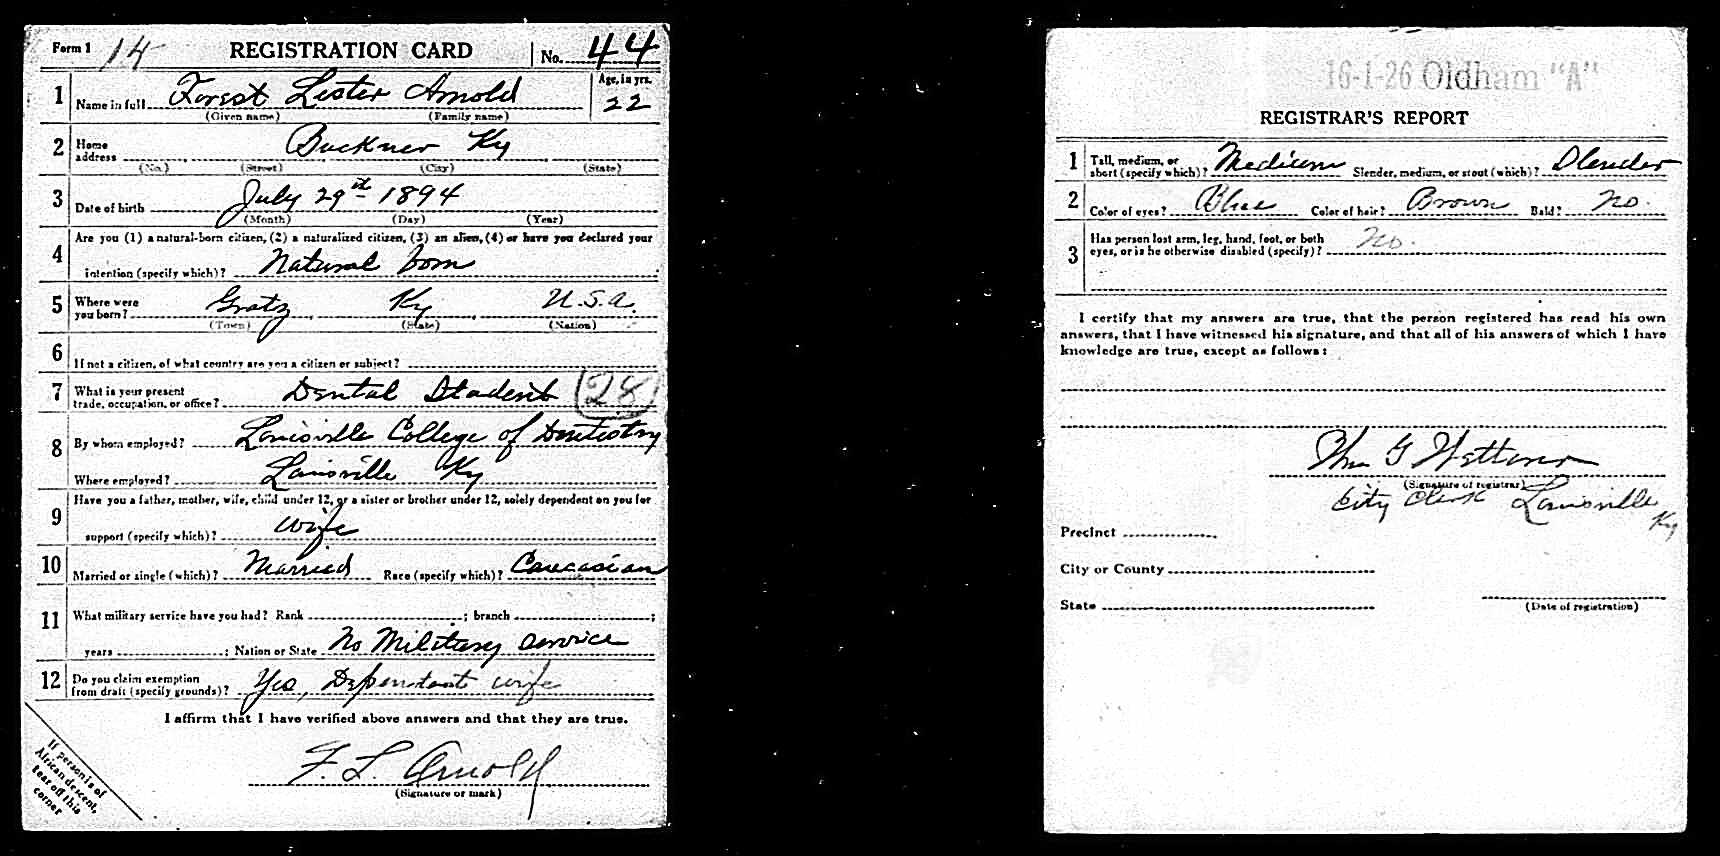 Form 1 14 REGISTRATION CARD No. 44
1 Name in full Forest Lester Arnold Age, in yrs. 22
(Given name) (Family name)
2 Home address Buckner Ky
(No.) (Street) (City) (State)
3 Date of birth July 29th 1894
(Month) (Day) (Year)
4 Are you (1) a natural-born citizen, (2) a naturalized citizen, (3) an alien, (4) or have you declared your
intention (specify which)? Natural born
5 Where were you born? Gratz Ky U.S.A.
(Town) (State) (Nation)
6 If not a citizen, of what country are you a citizen or subject?
7 What is your present trade, occupation, or office? Dental Student (28)
8 By whom employed? Louisville College of Dentistry
Where employed? Louisville Ky
9 Have you a father, mother, wife, child under 12, or a sister or brother under 12, solely dependent on you for
support (specify which)? wife
10 Married or single (which)? Married Race (specify which)? Caucasian
11 What military service have you had? Rank ; branch ;
years ; Nation or State No Military Service
12 Do you claim exemption from draft (specify grounds)? Yes, Dependant wife
I affirm that I have verified above answers and that they are true.
F. L. Arnold
(Signature or mark)
If person is of
African descent,
tear off this
corner
16-1-26 Oldham "A"
REGISTRAR'S REPORT
1 Tall, medium, or short (specify which)? Medium Slender, medium, or stout (which)? Slender
2 Color of eyes? Blue Color of hair? Brown Bald? No.
3 Has person lost arm, leg, hand, foot, or both
eyes, or is he otherwise disabled (specify)? No.
I certify that my answers are true, that the person registered has read his own
answers, that I have witnessed his signature, and that all of his answers of which I have
knowledge are true, except as follows:
Wm G
(Signature of registrar)
City Clerk Louisville Ky
Precinct
City or County
State
(Date of registration)